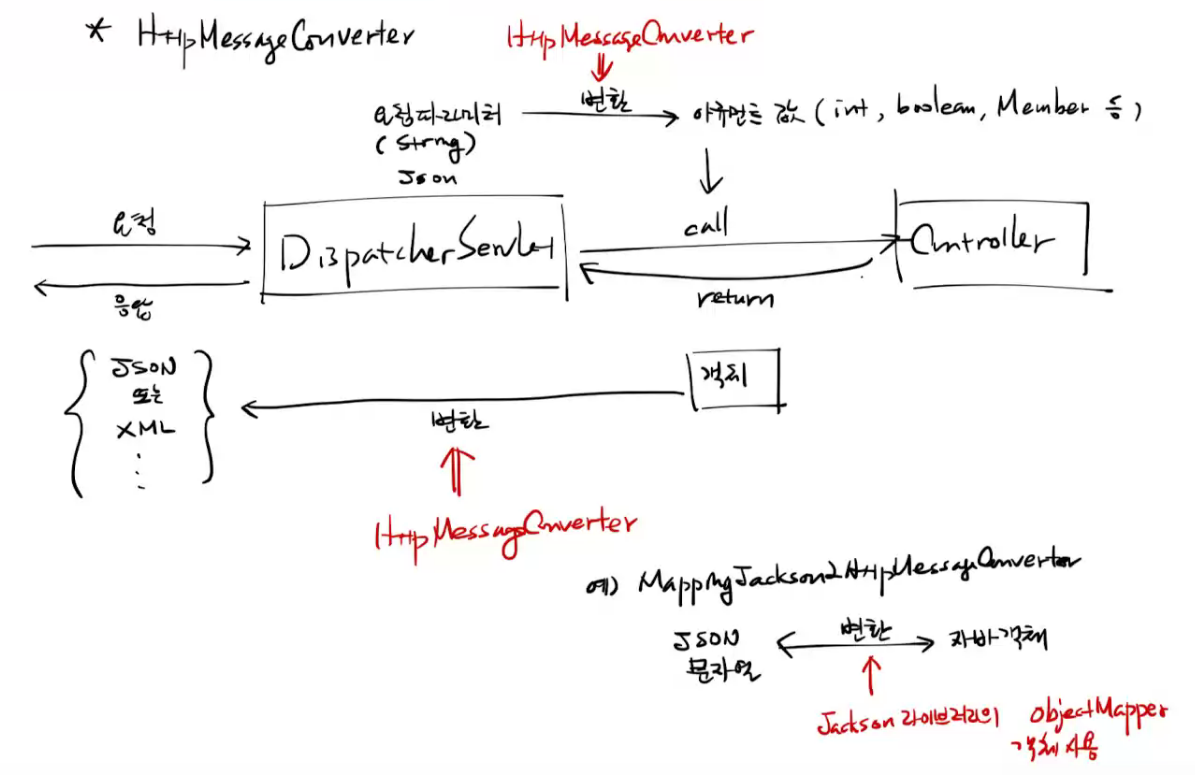 * HttpMessageConverter
HttpMessageConverter
변환
요청파라미터
(String)
Json
아규먼트 값 (int, boolean, Member 등)
요청
응답
DispatcherServlet
call
return
Controller
JSON
또는
XML
⋮
객체
변환
HttpMessageConverter
예) MappingJackson2HttpMessageConverter
JSON
문자열
변환
자바객체
Jackson 라이브러리의 ObjectMapper
객체 사용